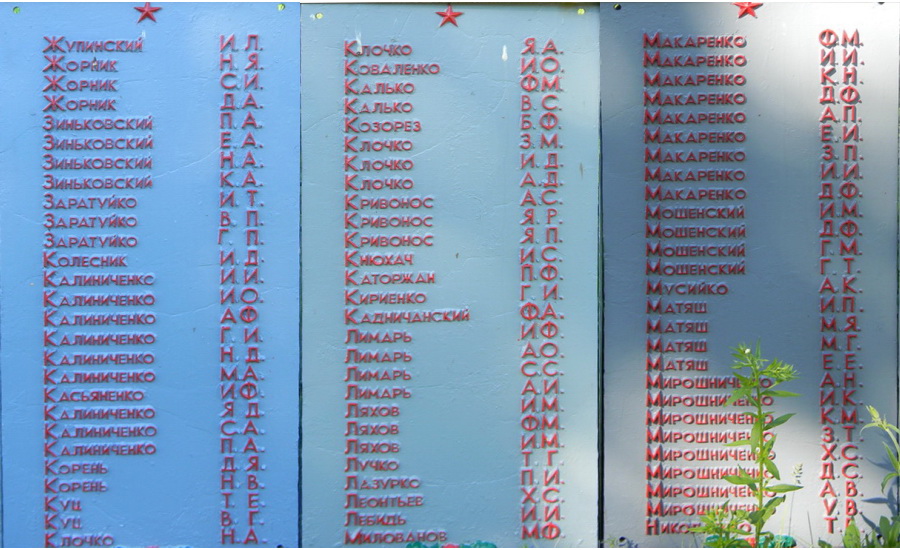 Жупинский И.Л.
Жорник Н.Я.
Жорник С.И.
Жорник Д.А.
Зиньковский П.А.
Зиньковский Е.А.
Зиньковский Н.А.
Зиньковский К.А.
Заратуйко И.Т.
Заратуйко В.П.
Заратуйко Г.П.
Колесник И.Д.
Калиниченко И.И.
Калиниченко И.О.
Калиниченко А.Ф.
Калиниченко Г.И.
Калиниченко Н.Д.
Калиниченко М.А.
Касьяненко И.Ф.
Калиниченко Я.Д.
Калиниченко С.А.
Калиниченко П.А.
Корень Д.Я.
Корень Н.В.
Куц Т.Е.
Куц В.Г.
Клочко Н.А.
Клочко Я.А.
Коваленко И.О.
Калько Ф.М.
Калько В.С.
Козорез Б.Ф.
Клочко З.М.
Клочко И.Д.
Клочко А.Д.
Кривонос А.С.
Кривонос Я.Р.
Кривонос Я.П.
Кнюхач И.С.
Каторжан П.Ф.
Кириенко Г.И.
Кадничанский Ф.А.
Лимарь И.Ф.
Лимарь А.О.
Лимарь С.С.
Лимарь А.И.
Ляхов И.М.
Ляхов Ф.М.
Ляхов И.М.
Лучко Т.Г.
Лазурко П.И.
Леонтьев Х.С.
Лебидь И.И.
Милованов Ф.
Макаренко Ф.М.
Макаренко И.И.
Макаренко К.Н.
Макаренко Д.Ф.
Макаренко А.П.
Макаренко Е.И.
Макаренко З.П.
Макаренко И.И.
Макаренко Д.Ф.
Мошенский И.М.
Мошенский Д.Ф.
Мошенский Г.М.
Мошенский Г.Т.
Мусийко А.К.
Матяш И.П.
Матяш М.Я.
Матяш М.Г.
Матяш Е.Е.
Мирошниченко А.Н.
Мирошниченко И.К.
Мирошниченко К.М.
Мирошниченко З.Т.
Мирошниченко Х.С.
Мирошниченко Д.С.
Мирошниченко А.В.
Мирошниченко У.В.
Т.